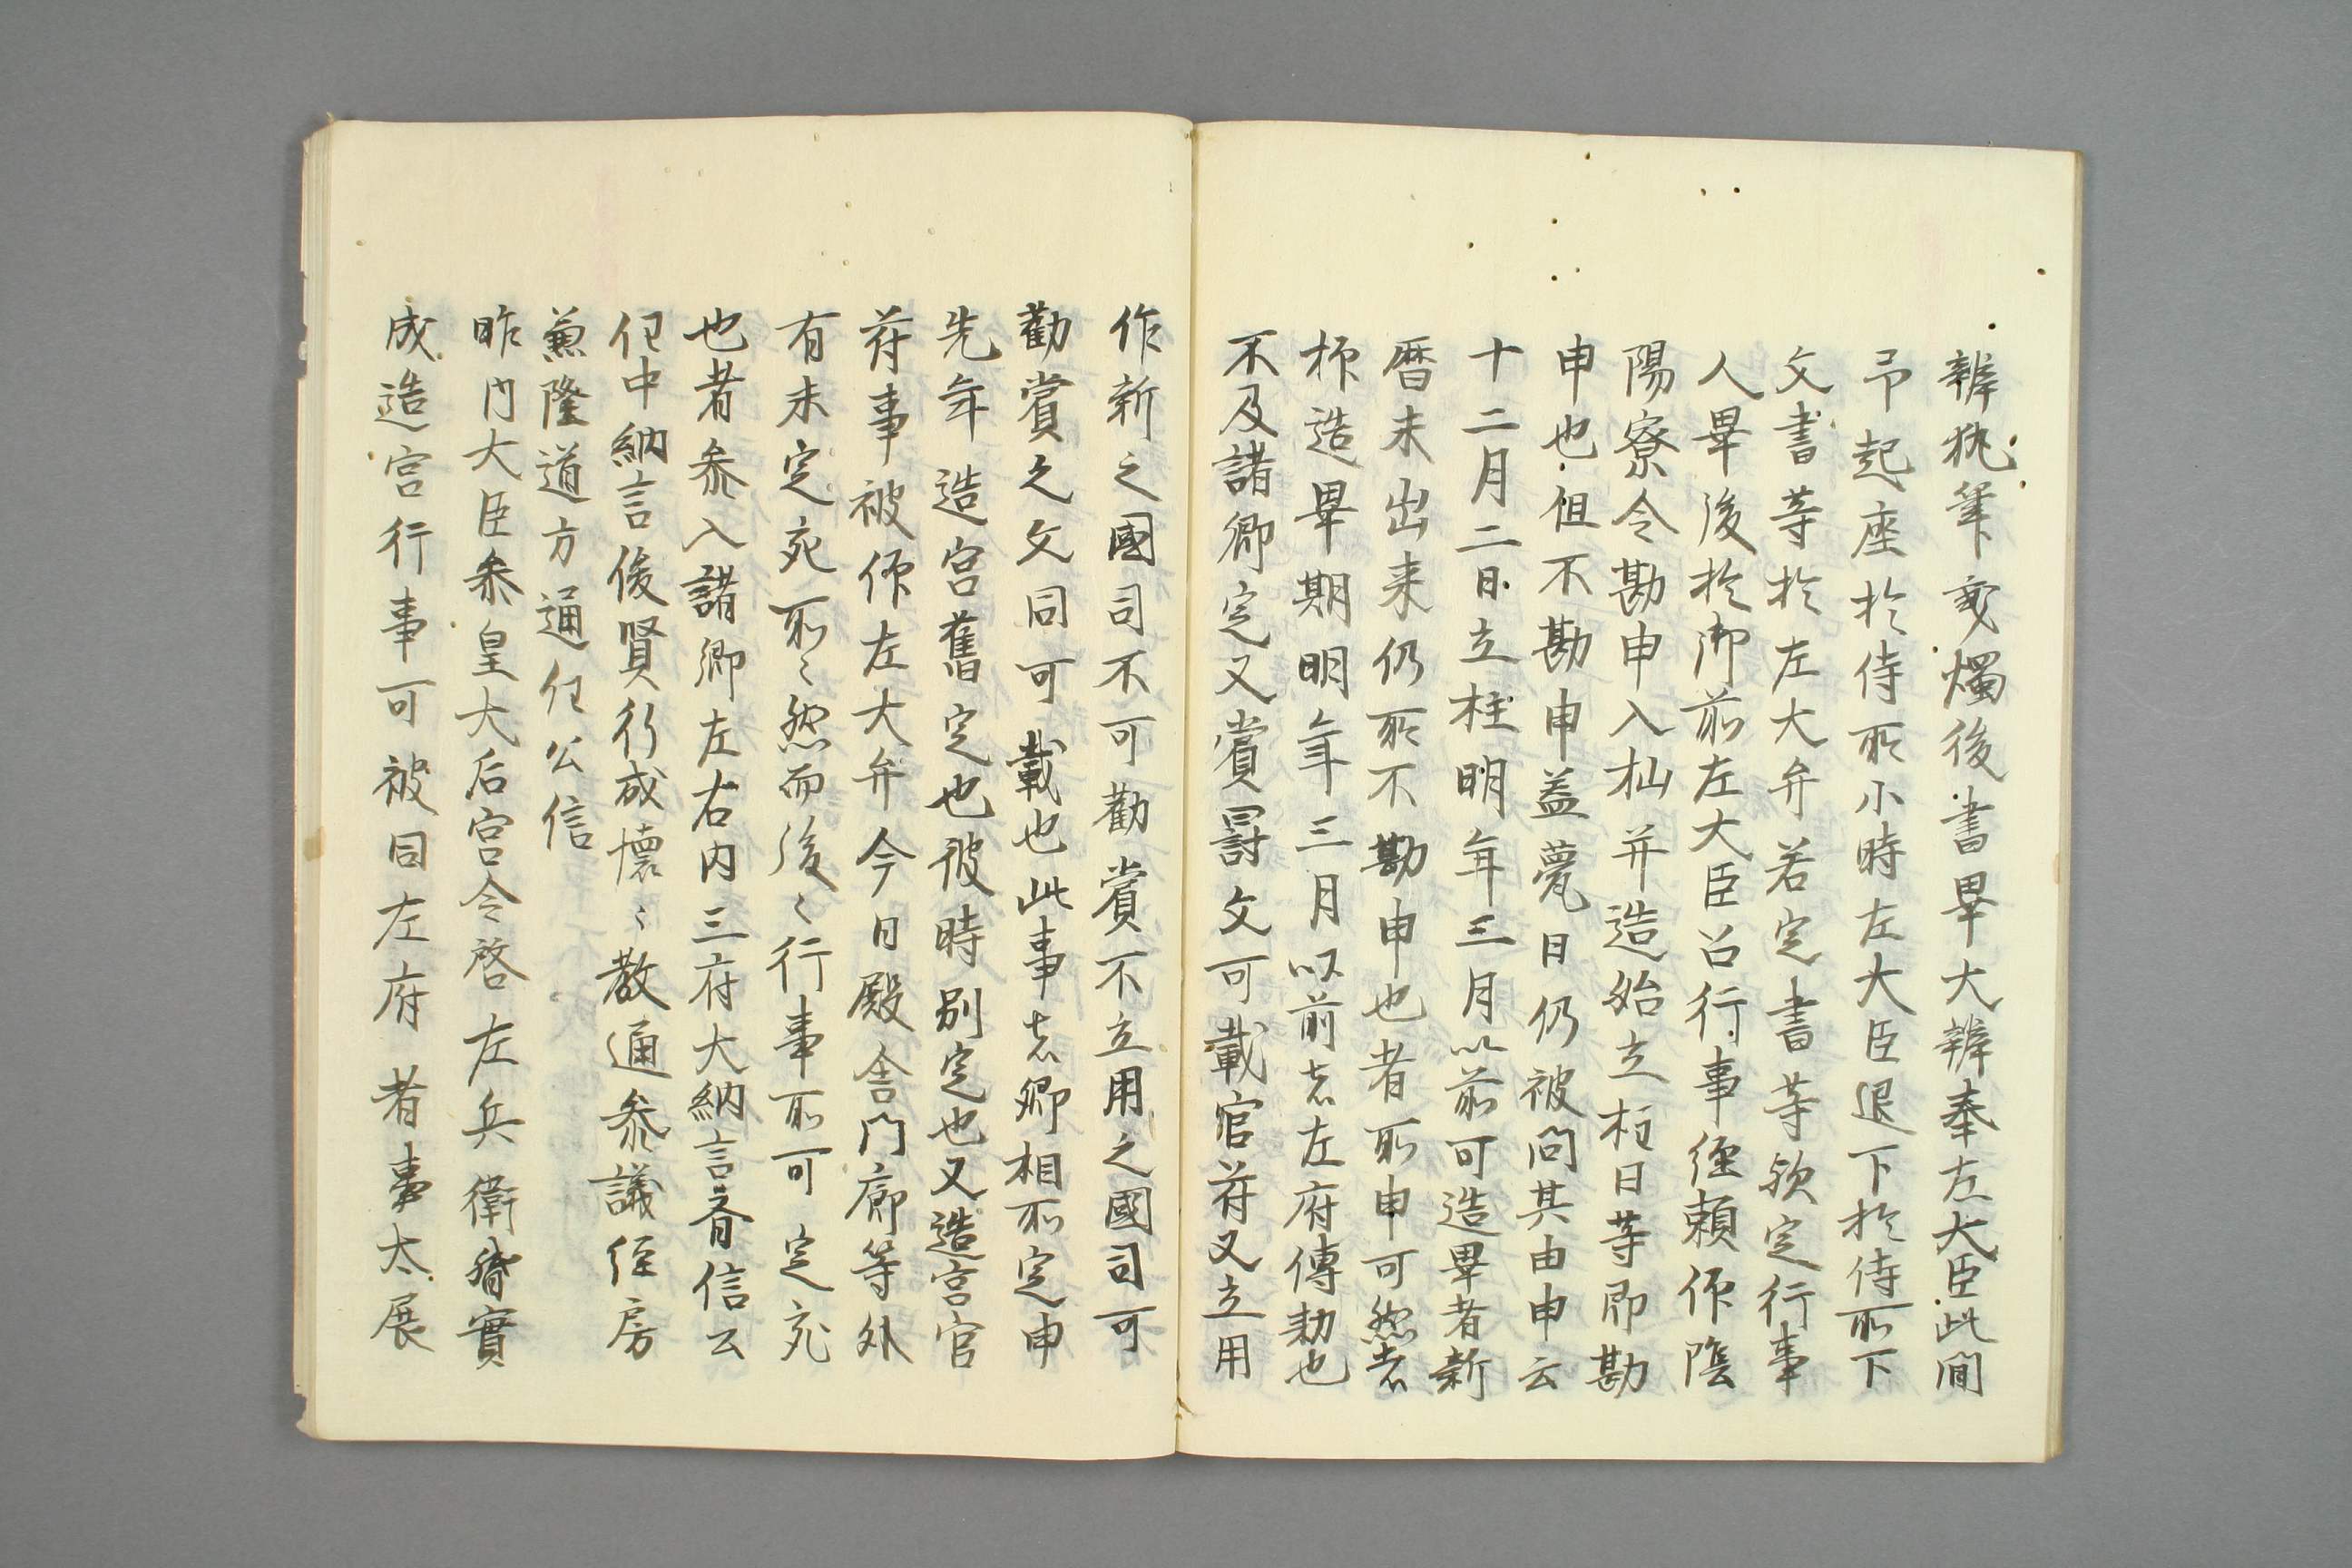 辨執筆、秉燭後書畢大辨奉左大臣此間
予起座於侍所小時左大臣退下於侍所下
文書等於左大弁若定書等欤定行事
人畢後於御前左大臣召行事経頼仰陰
陽寮令勘申入杣并造始立柱日等即勘
申也但不勘申葺甍日仍被問其由申云
十二月二日立柱明年三月以前可造畢者新
暦未出来仍所不勘申也者所申可然者
抑造畢期明年三月以前者左府傳勅也
不及諸卿定又賞罸文可載官苻又立用
作新之國司不可勸賞不立用之國司可
勸賞之文同可載也此事諸卿相所定申
先年造宮舊定也彼時別定也又造宮官
苻事被仰左大弁今日殿舎門廊等外
有未定宛所〻然而後〻行事所可定宛
也者参入諸卿左右内三府大納言齊信云
任中納言俊賢行成懐〻教通参議経房
兼隆道方通任公信
昨内大臣参皇大后宮令啓左兵衛督實
成造宮行事可被因左府者事太展